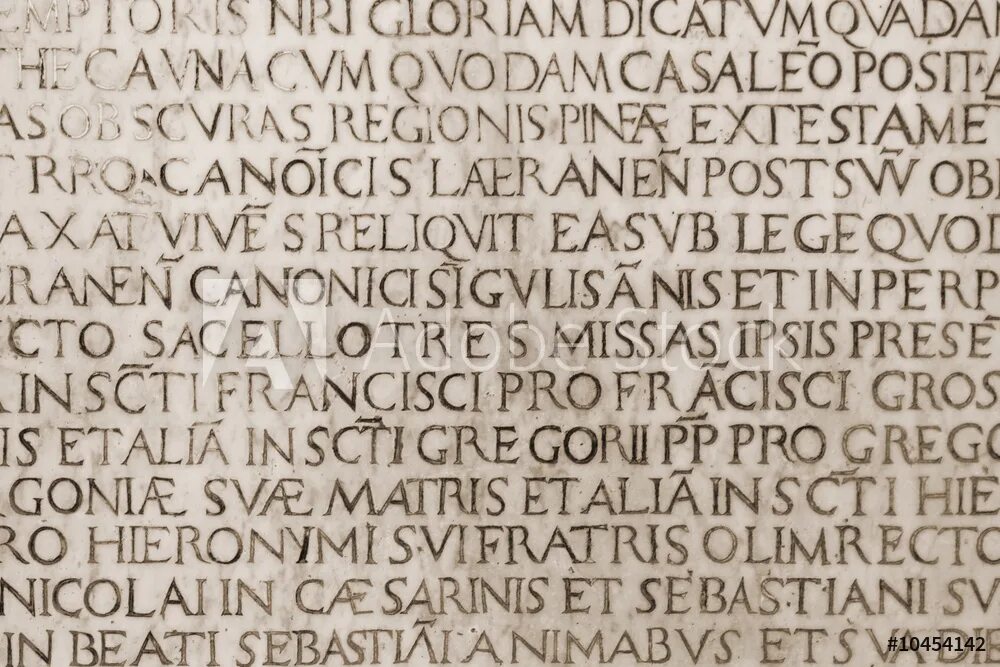 EMPTORIS NRI GLORIAM DICATVM QVADAM
HEC AVNA CVM QVODAM CASALE Õ POSITA
AS OBSCVRAS REGIONIS PINEÆ EX TESTAME
RRO CANOĨCIS LAERANEÑ POST SVV̄ OBI
AXAT VIVĒS RELIQVIT EA SVB LEGE QVOD
ERANEÑ CANONICI SĪGVLIS ÃNIS ET IN PERP
CTO SACELLO TRES MISSAS IPSIS PRESĒ
IN SC̄TI FRANCISCI PRO FRÃCISCI GROS
IS ET ALIÃ IN SC̄TI GREGORII PP̄ PRO GREGO
GONIÆ SVÆ MATRIS ET ALIÃ IN SC̄TI HIE
RO HIERONYMI SVI FRATRIS OLIM RECTO
NICOLAI IN CÆSARINIS ET SEBASTIANI SV
IN BEATI SEBASTIÃI ANIMABVS ET SVI
Adobe Stock
#10454142